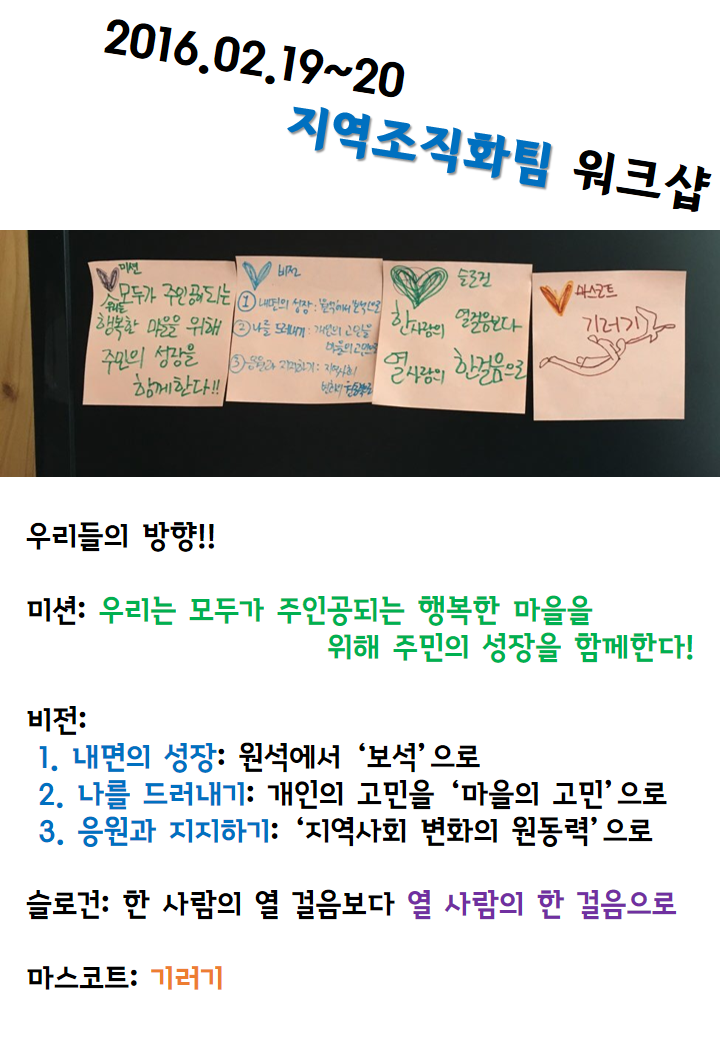 2016.02.19~20
지역조직화팀 워크샵
미션
우리는 모두가 주인공되는
행복한 마을을 위해
주민의 성장을
함께한다!!
비전
① 내면의 성장 : 원석에서 보석으로
② 나를 드러내기 : 개인의 고민을
마을의 고민으로
③ 응원과 지지하기 : 지역사회
변화의 원동력으로
슬로건
한사람의 열걸음보다
열사람의 한걸음으로
마스코트
기러기
우리들의 방향!!
미션: 우리는 모두가 주인공되는 행복한 마을을
위해 주민의 성장을 함께한다!
비전:
1. 내면의 성장: 원석에서 ‘보석’으로
2. 나를 드러내기: 개인의 고민을 ‘마을의 고민’으로
3. 응원과 지지하기: ‘지역사회 변화의 원동력’으로
슬로건: 한 사람의 열 걸음보다 열 사람의 한 걸음으로
마스코트: 기러기